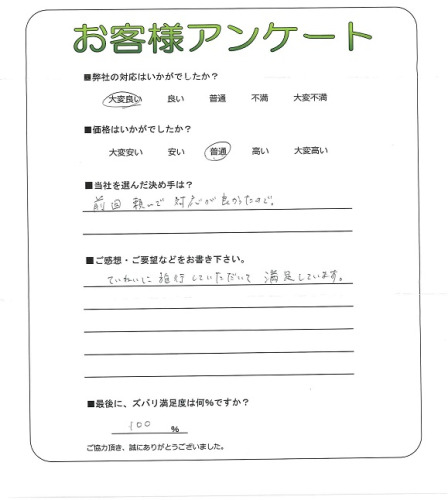 お客様アンケート
■弊社の対応はいかがでしたか？
大変良い 良い 普通 不満 大変不満
■価格はいかがでしたか？
大変安い 安い 普通 高い 大変高い
■当社を選んだ決め手は？
前回 頼んで 対応が良かったので。
■ご感想・ご要望などをお書き下さい。
ていねいに 施行していただいて 満足しています。
■最後に、ズバリ満足度は何％ですか？
100 %
ご協力頂き、誠にありがとうございました。